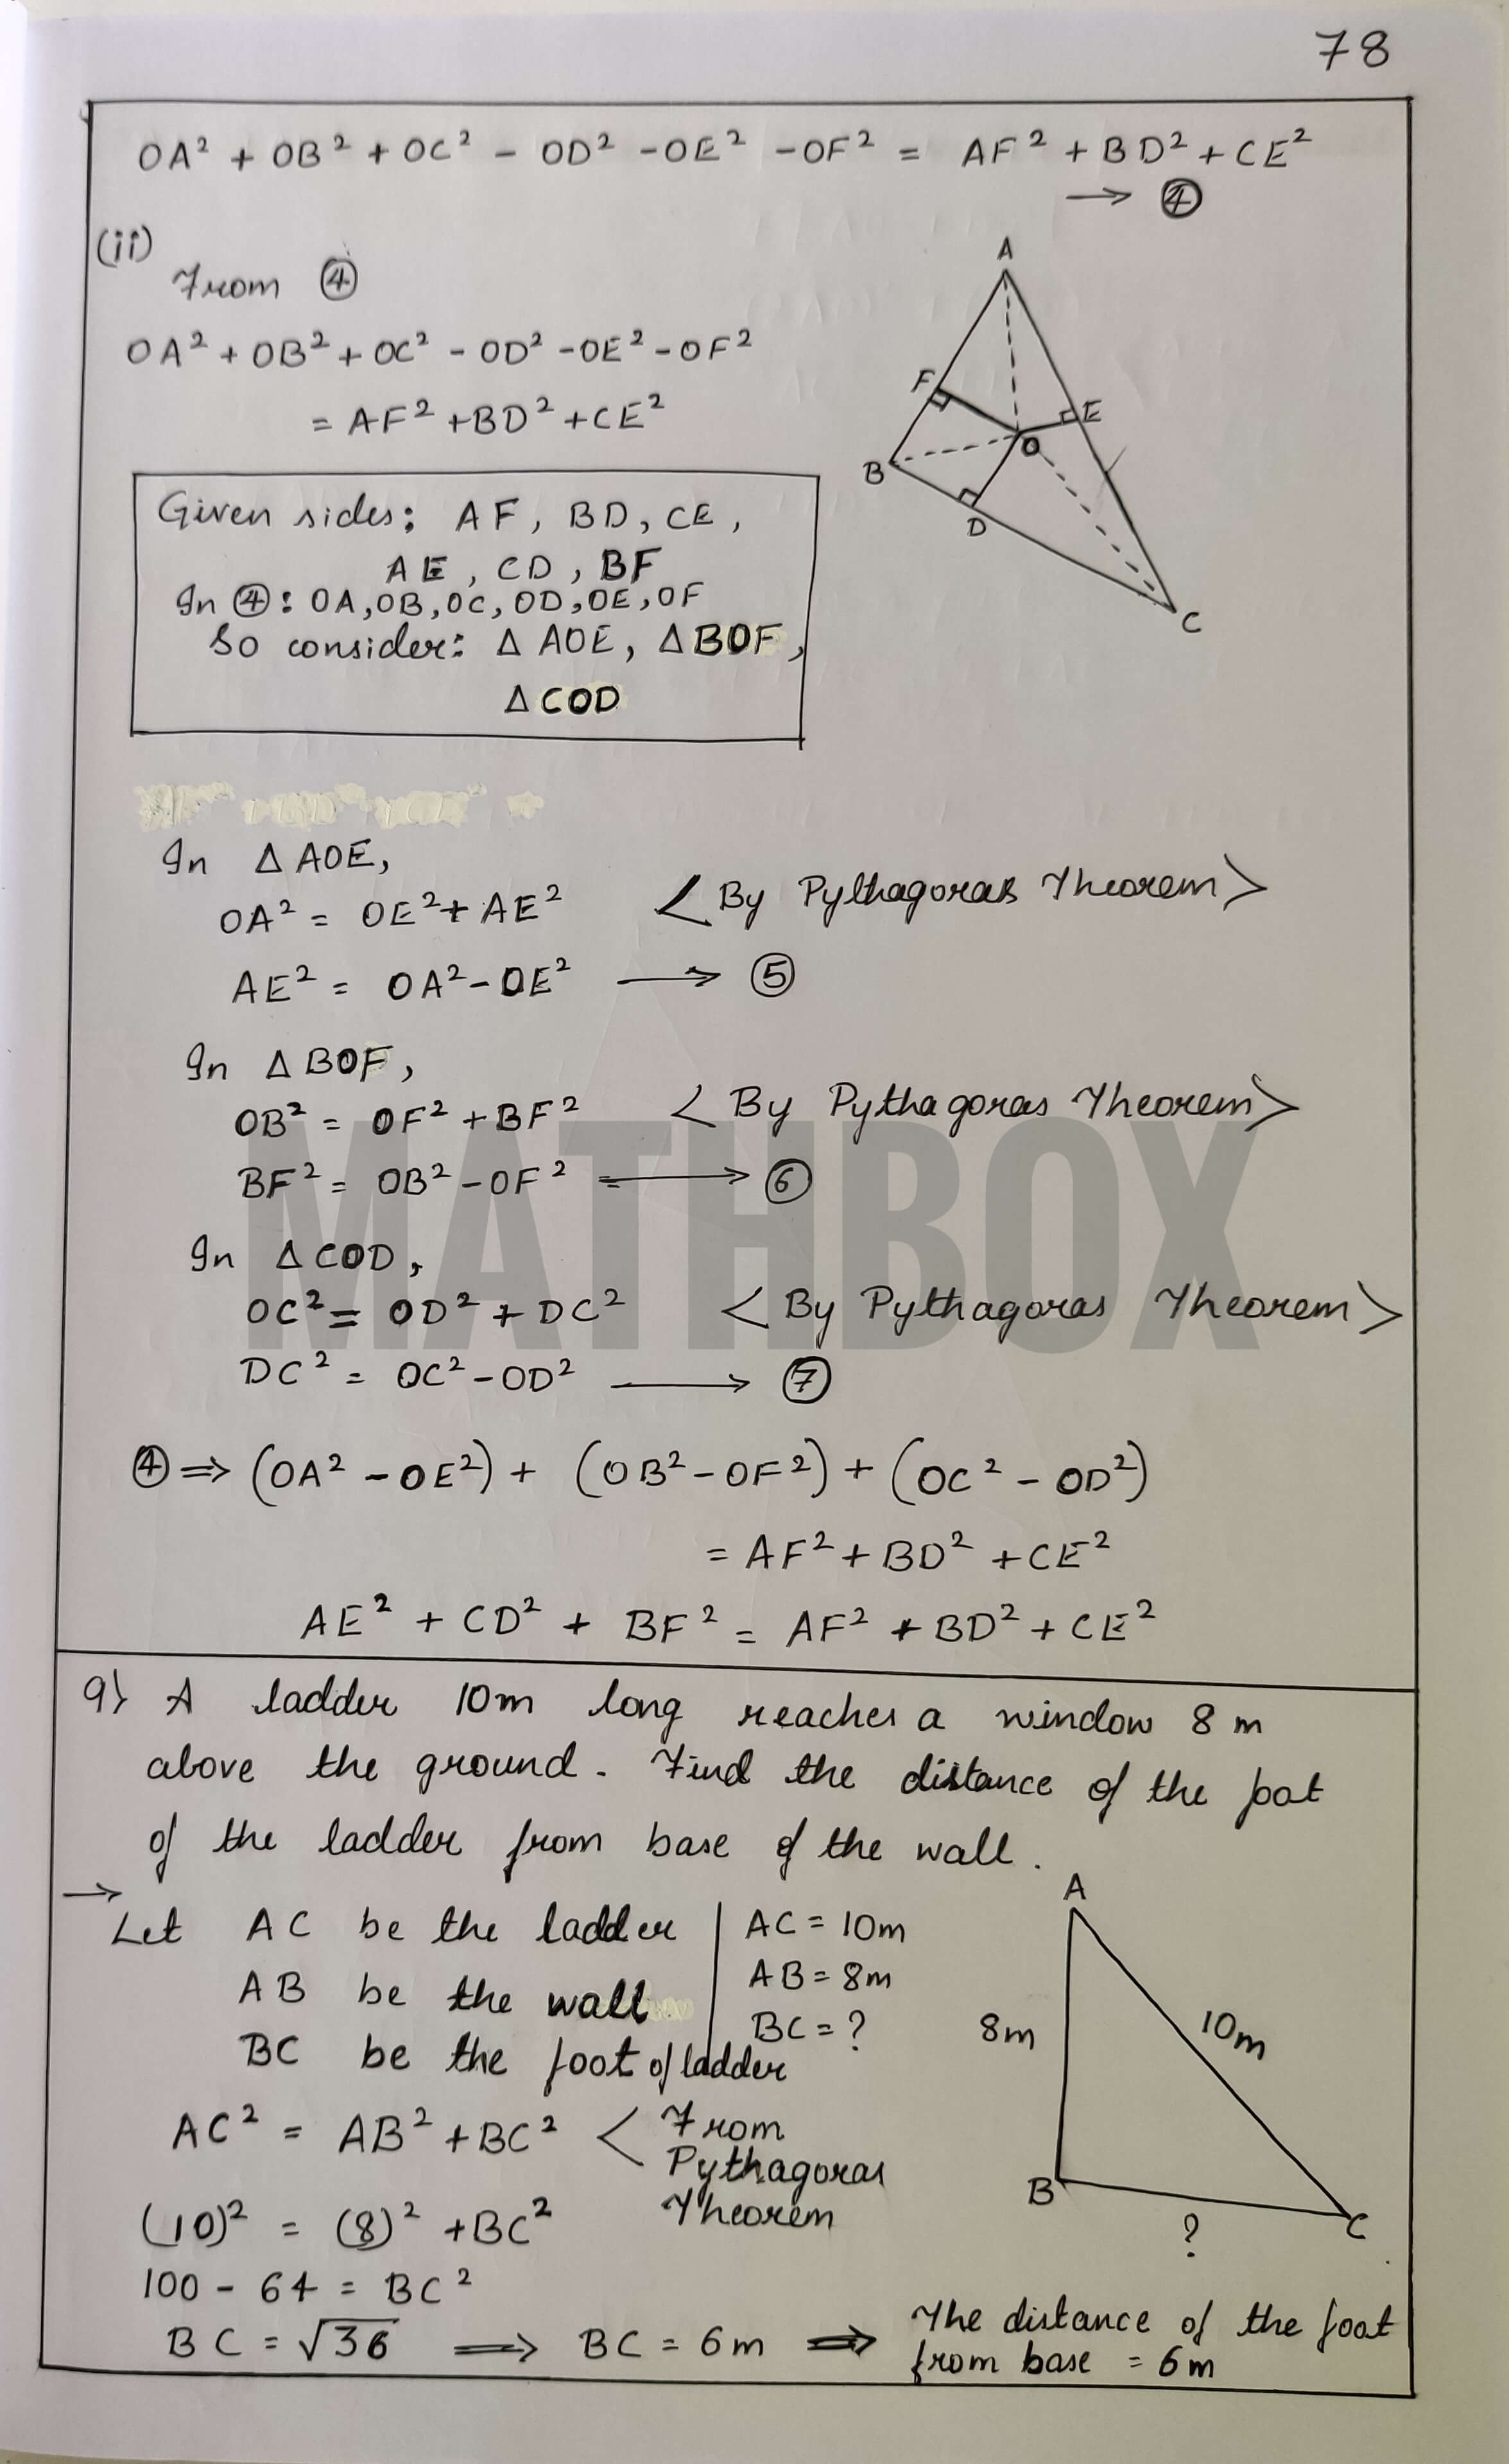 78
OA² + OB² + OC² - OD² - OE² - OF² = AF² + BD² + CE²
→ ④
(ii)
From ④
OA² + OB² + OC² - OD² - OE² - OF²
= AF² + BD² + CE²
A
F
E
B
O
D
C
Given sides: AF, BD, CE,
AE, CD, BF
In ④: OA, OB, OC, OD, OE, OF
So consider: Δ AOE, Δ BOF,
Δ COD
In Δ AOE,
OA² = OE² + AE² < By Pythagoras Theorem >
AE² = OA² - OE² → ⑤
In Δ BOF,
OB² = OF² + BF² < By Pythagoras Theorem >
BF² = OB² - OF² → ⑥
In Δ COD,
OC² = OD² + DC² < By Pythagoras Theorem >
DC² = OC² - OD² → ⑦
MATHBOX
④ ⇒ (OA² - OE²) + (OB² - OF²) + (OC² - OD²)
= AF² + BD² + CE²
AE² + CD² + BF² = AF² + BD² + CE²
9) A ladder 10m long reaches a window 8 m
above the ground. Find the distance of the foot
of the ladder from base of the wall.
→
Let AC be the ladder | AC = 10m
AB be the wall | AB = 8m
BC be the foot of ladder | BC = ?
A
8m
10m
B
C
?
AC² = AB² + BC² < From
Pythagoras
Theorem
(10)² = (8)² + BC²
100 - 64 = BC²
BC = √36 ⇒ BC = 6m ⇒ The distance of the foot
from base = 6m